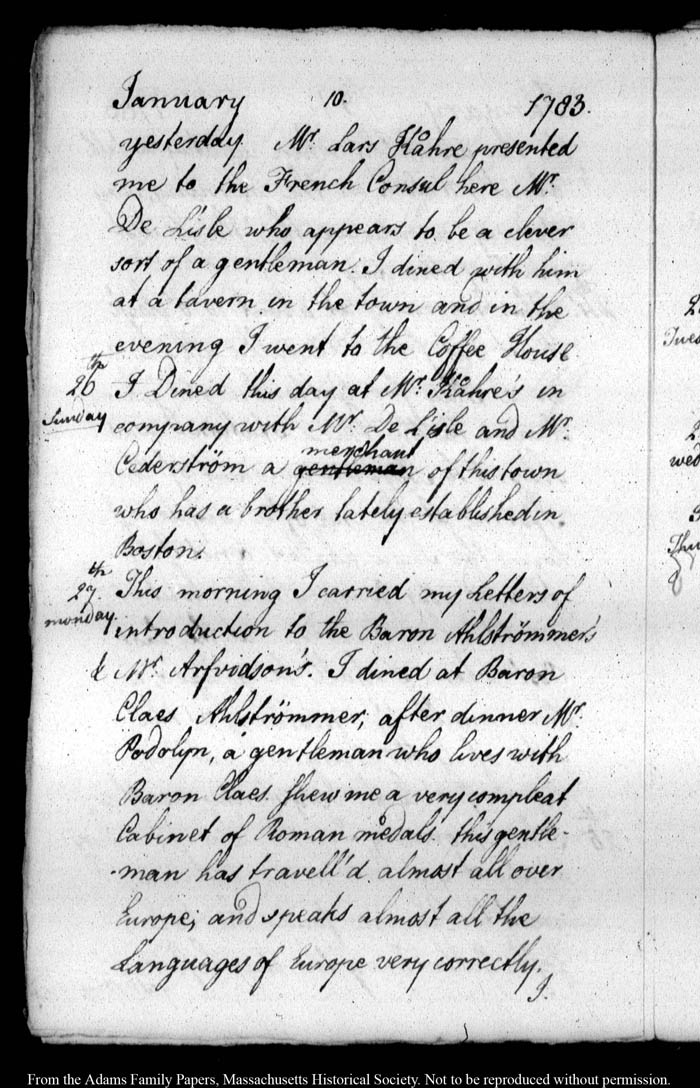 January 10. 1783.
yesterday. Mr. Lars Kåhre presented
me to the French Consul here Mr.
De L'isle who appears to be a clever
sort of a gentleman. I dined with him
at a tavern in the town and in the
evening I went to the Coffee House
26th Sunday I Dined this day at Mr. Kåhre's in
company with Mr. De L'isle and Mr.
merchant
Cederström a gentleman of this town
who has a brother lately established in
Boston.
27th monday This morning I carried my Letters of
introduction to the Baron Ahlströmmer's
& Mr. Arfvidson's. I dined at Baron
Claes Ahlströmmer; after dinner Mr.
Podolyn, a gentleman who lives with
Baron Claes. shew me a very compleat
Cabinet of Roman medals. this gentle-
-man has travell'd almost all over
Europe; and speaks almost all the
Languages of Europe very correctly.
I.
2
Tues
2
wed
Thu
From the Adams Family Papers, Massachusetts Historical Society. Not to be reproduced without permission.